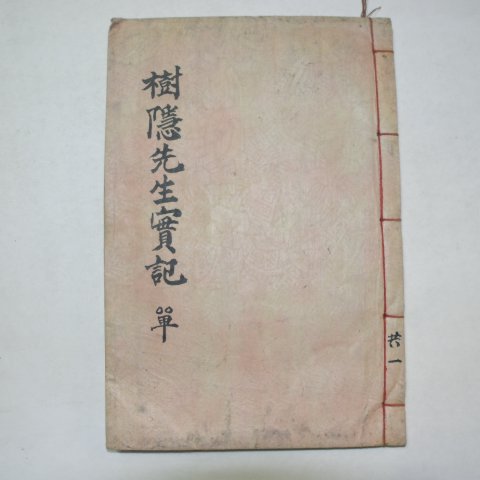 樹隱先生實記 單
共一